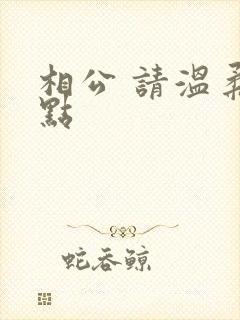 相公 請溫柔
點
蛇吞鯨